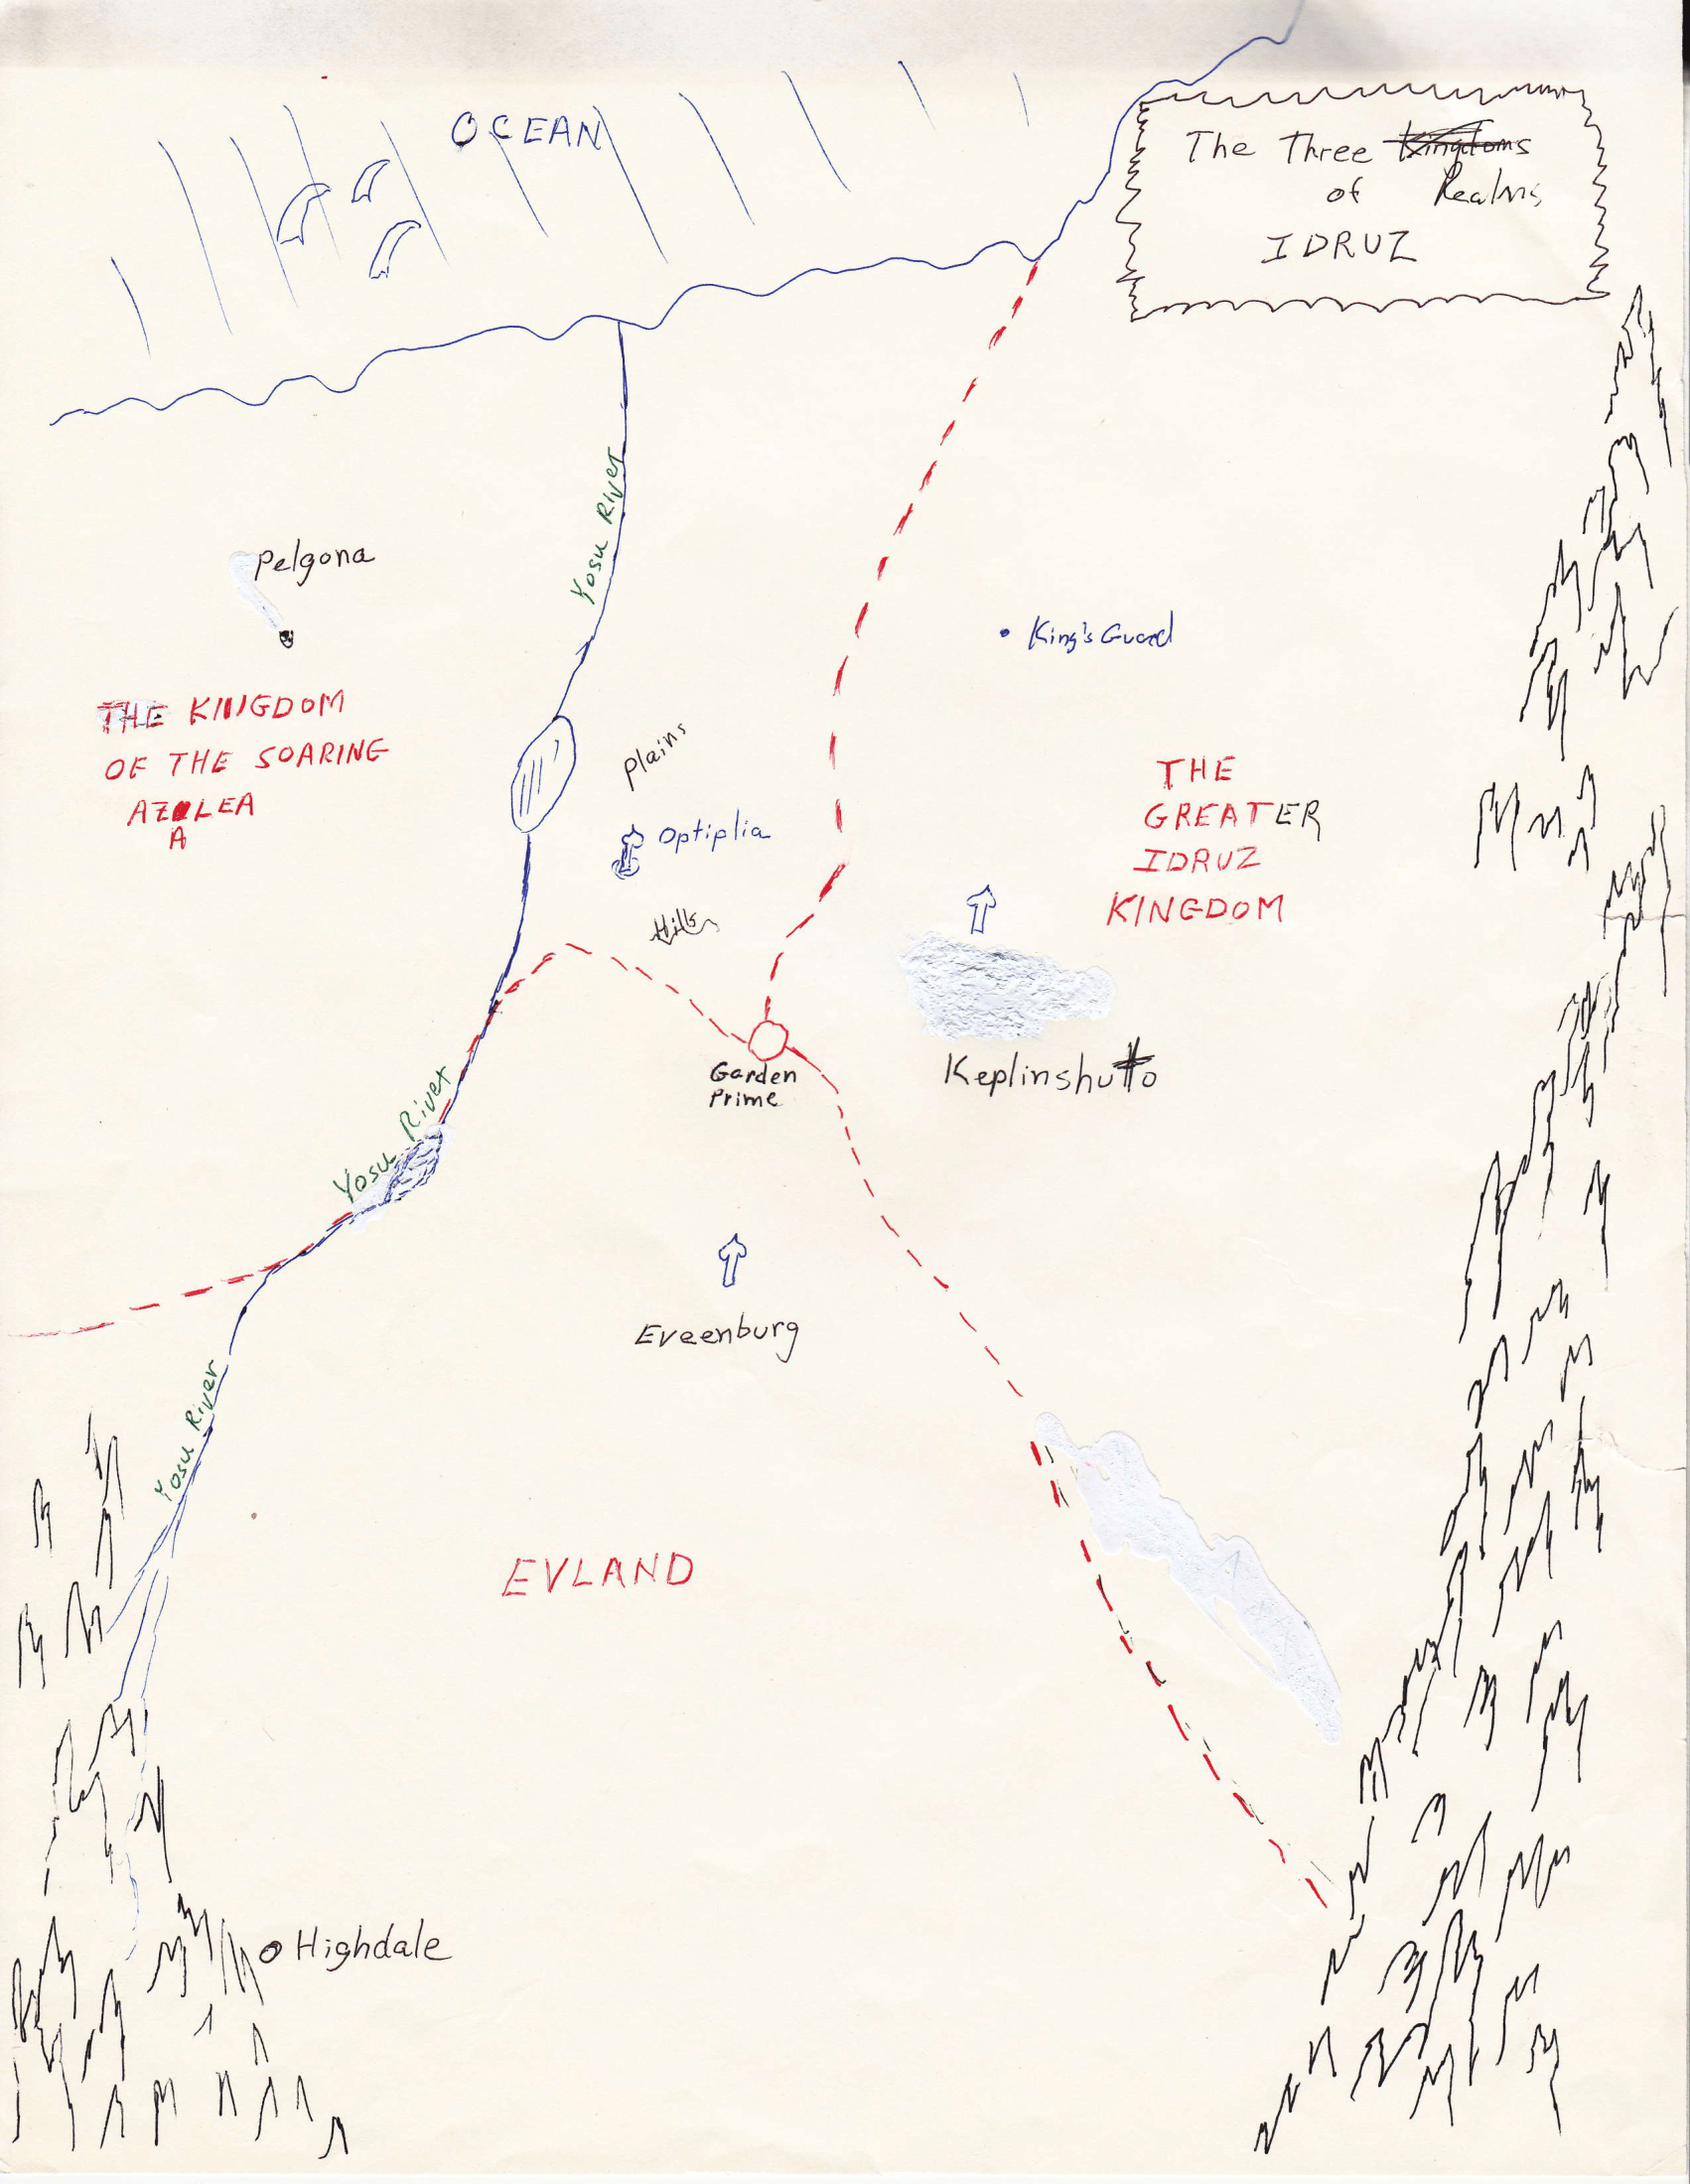 OCEAN
The Three Kingdoms
of Realms
IDRUZ
Yosu River
Pelgona
King's Guard
THE KINGDOM
OF THE SOARING
AZALEA
A
Plains
Optiplia
Hills
THE
GREATER
IDRUZ
KINGDOM
Garden
Prime
Keplinshutto
Yosu River
Eveenburg
Yosu River
EVLAND
Highdale